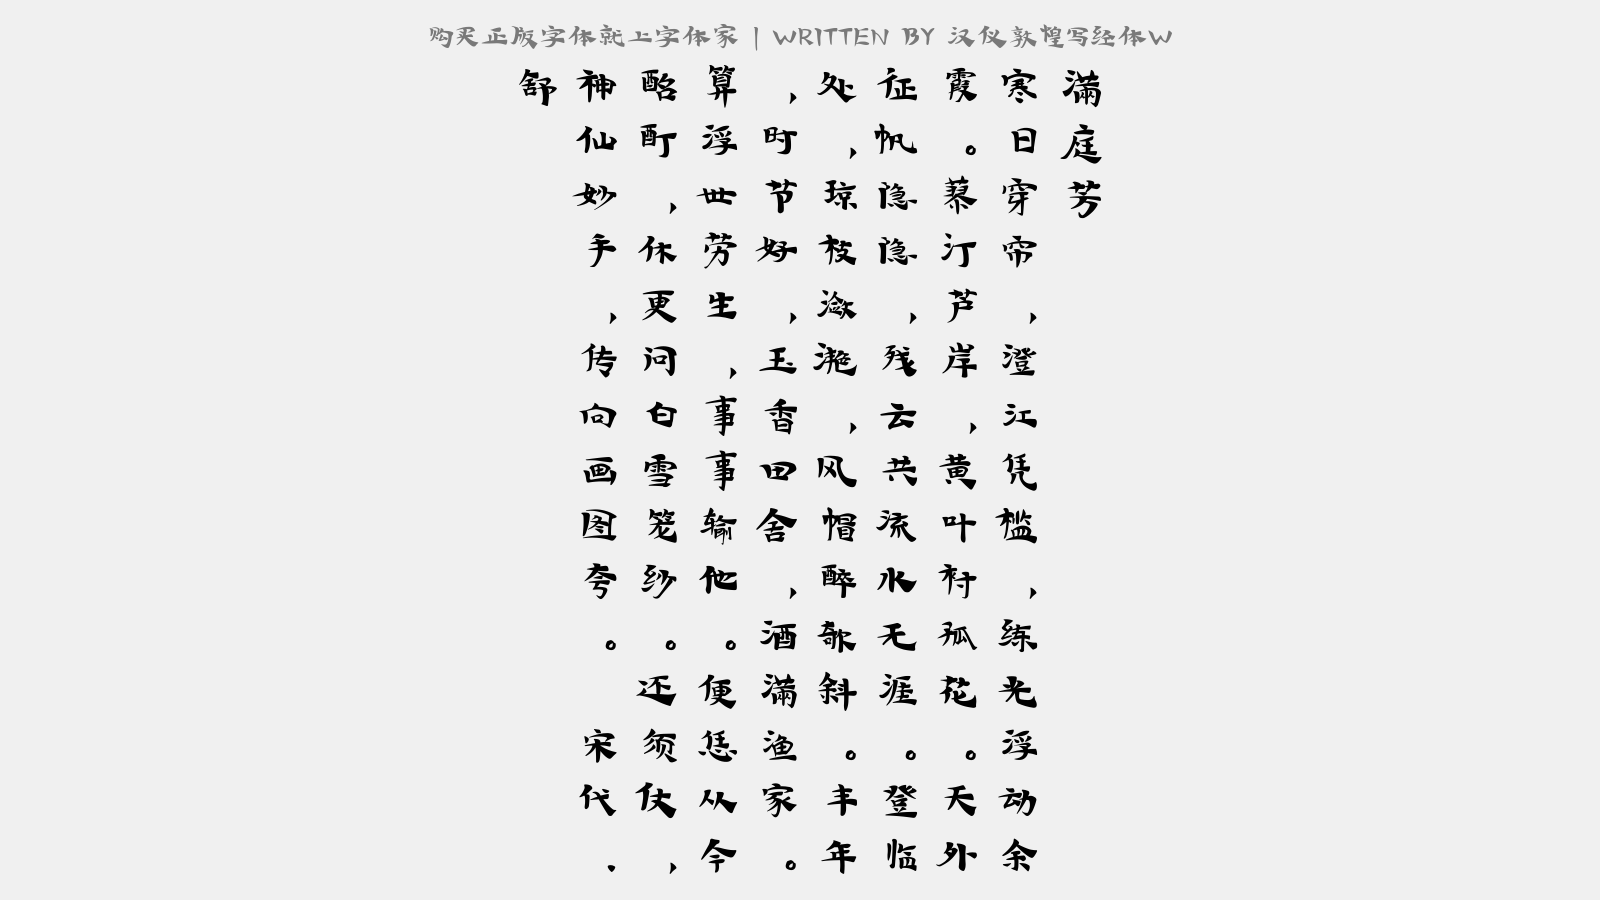 购买正版字体就上字体家 | WRITTEN BY 汉仪敦煌写经体W
满庭芳
寒日穿帘,澄江凭槛,练光浮动余
霞。蓼汀芦岸,黄叶衬孤花。天外
征帆隐隐,残云共流水无涯。登临
处,琼枝潋滟,风帽醉欹斜。丰年
,时节好,玉香田舍,酒满渔家。
算浮世劳生,事事输他。便恁从今
酩酊,休更问白雪笼纱。还须仗,
神仙妙手,传向画图夸。 宋代.
舒